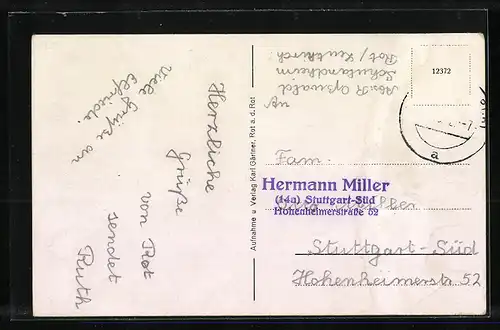 Viele Grüße an
Elfriede.
Herzliche
Grüße
von Rot
sendet
Ruth
Aufnahme u Verlag Karl Gärtner, Rot a. d. Rot
Schulandheim
Rot /
12372
a
Fam.
Hermann Miller
(14a) Stuttgart-Süd
Hohenheimerstraße 52
Stuttgart-Süd
Hohenheimerstr 52